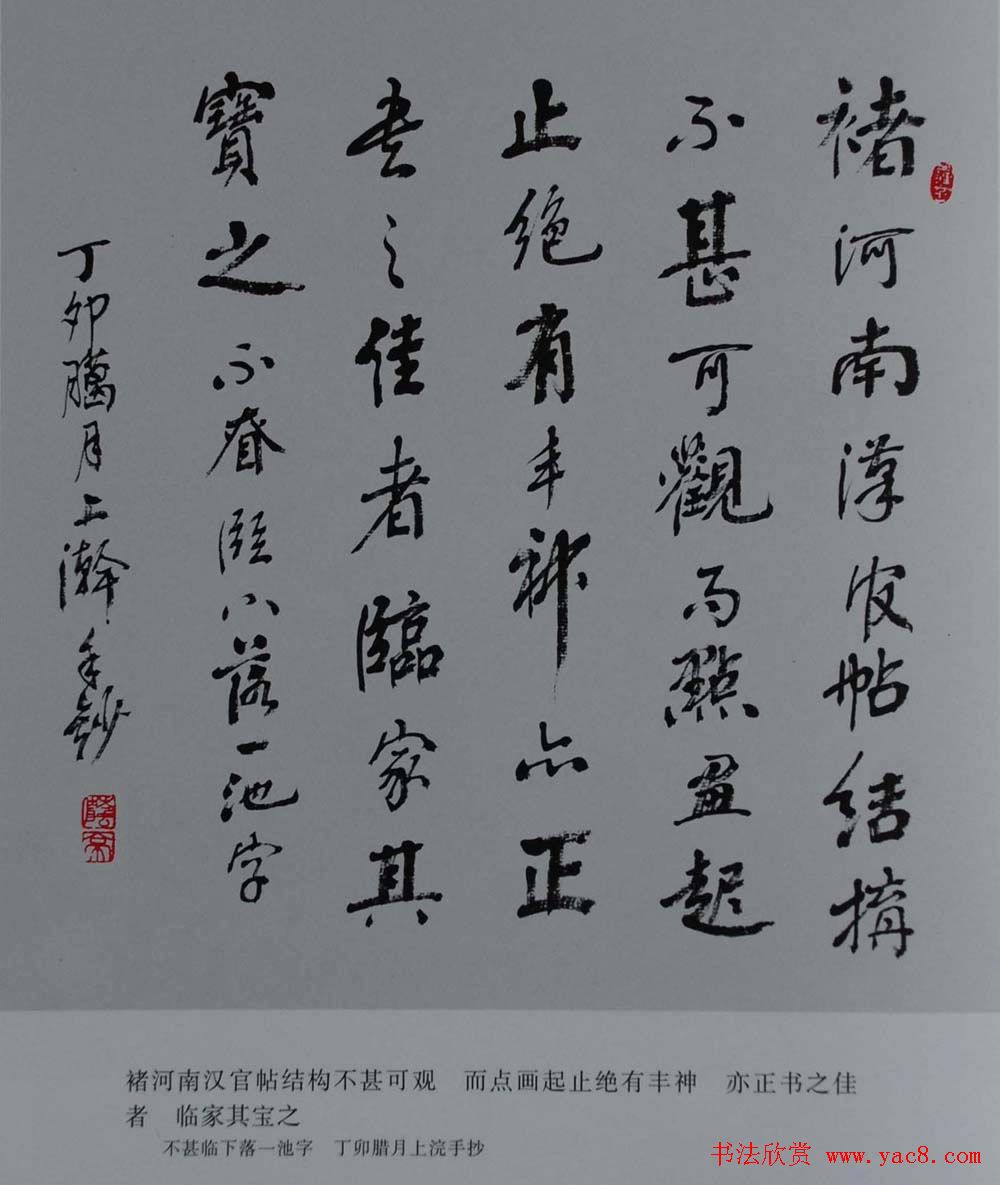 褚河南漢官帖結搆
不甚可觀而點畫起
止絕有丰神亦正
書之佳者臨家其
寶之不甚臨下落一池字
丁卯臘月上澣手鈔
褚河南汉官帖结构不甚可观　而点画起止绝有丰神　亦正书之佳
者　临家其宝之
不甚临下落一池字　丁卯腊月上浣手抄
书法欣赏 www.yac8.com